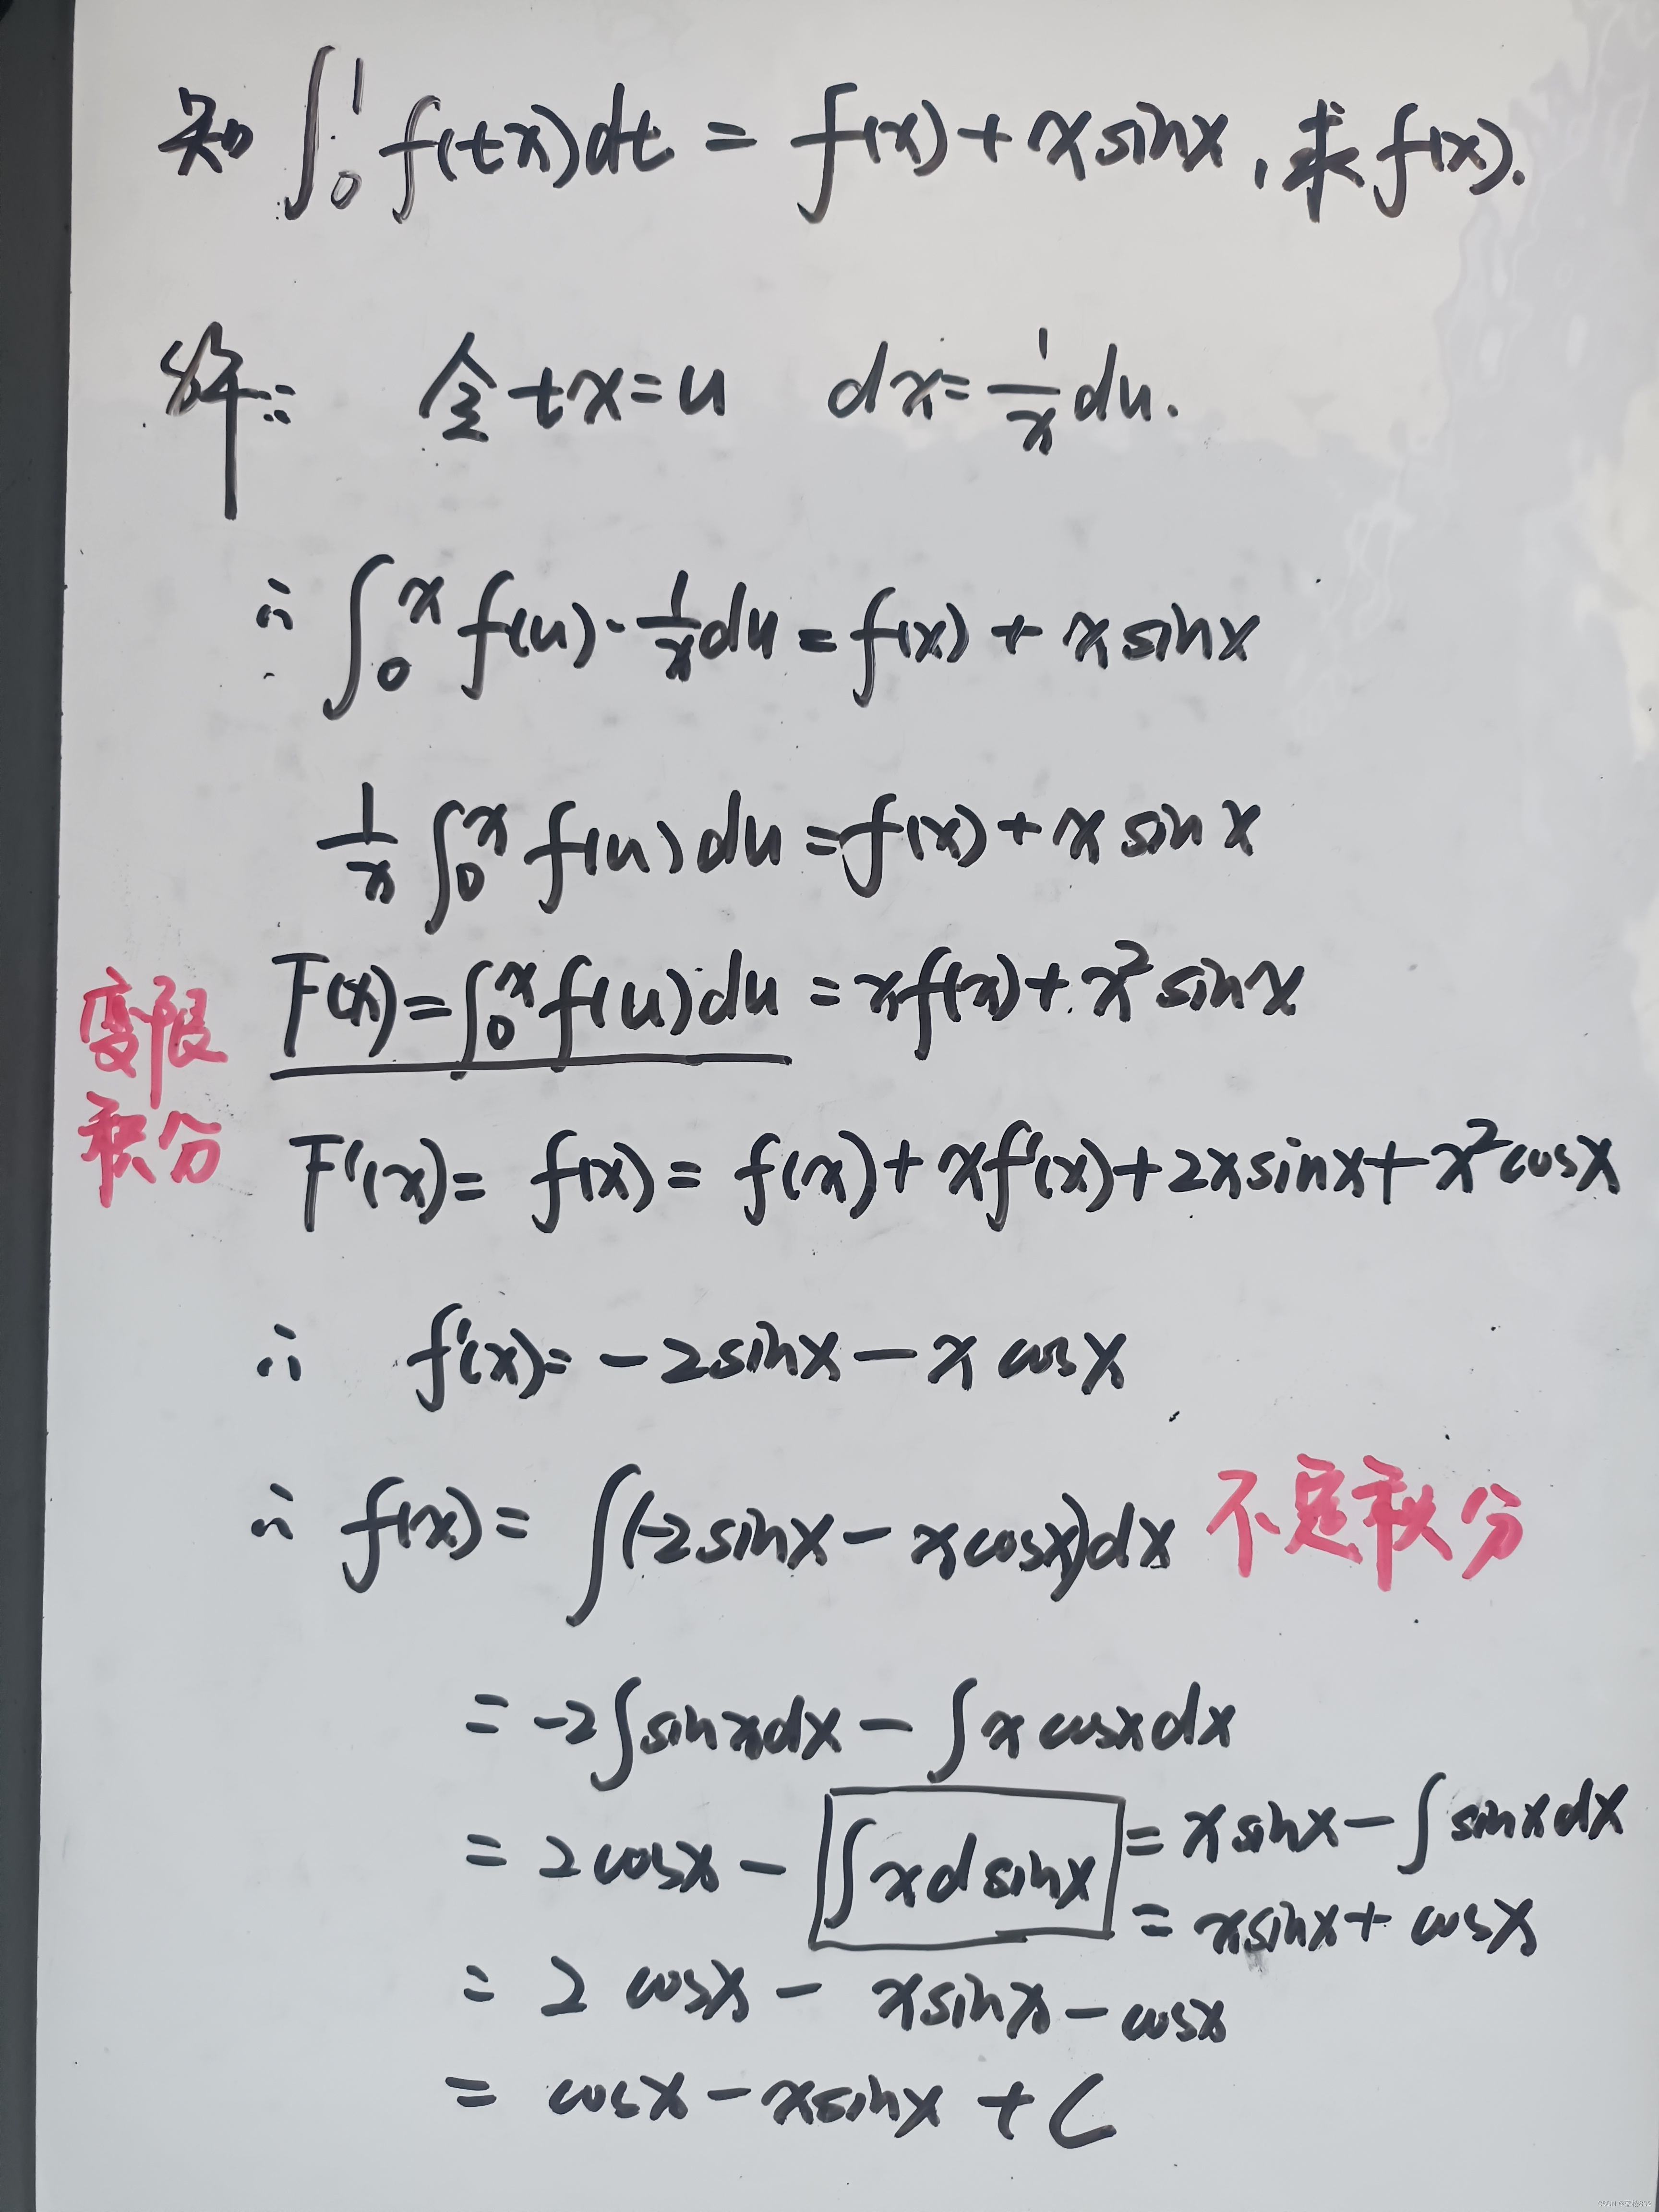 知 ∫₀¹ f(tx)dt = f(x) + x sinx, 求 f(x).
解: 令 tx = u dx = 1/x du.
∴ ∫₀ˣ f(u)·1/x du = f(x) + x sinx
1/x ∫₀ˣ f(u)du = f(x) + x sinx
变限
积分
F(x) = ∫₀ˣ f(u)du = xf(x) + x² sinx
F'(x) = f(x) = f(x) + xf'(x) + 2x sinx + x² cosx
∴ f'(x) = -2sinx - x cosx
∴ f(x) = ∫(-2sinx - x cosx)dx 不定积分
= -2∫sinxdx - ∫x cosxdx
= 2cosx - ∫xd sinx = x sinx - ∫sinxdx
= x sinx + cosx
= 2 cosx - x sinx - cosx
= cosx - x sinx + C